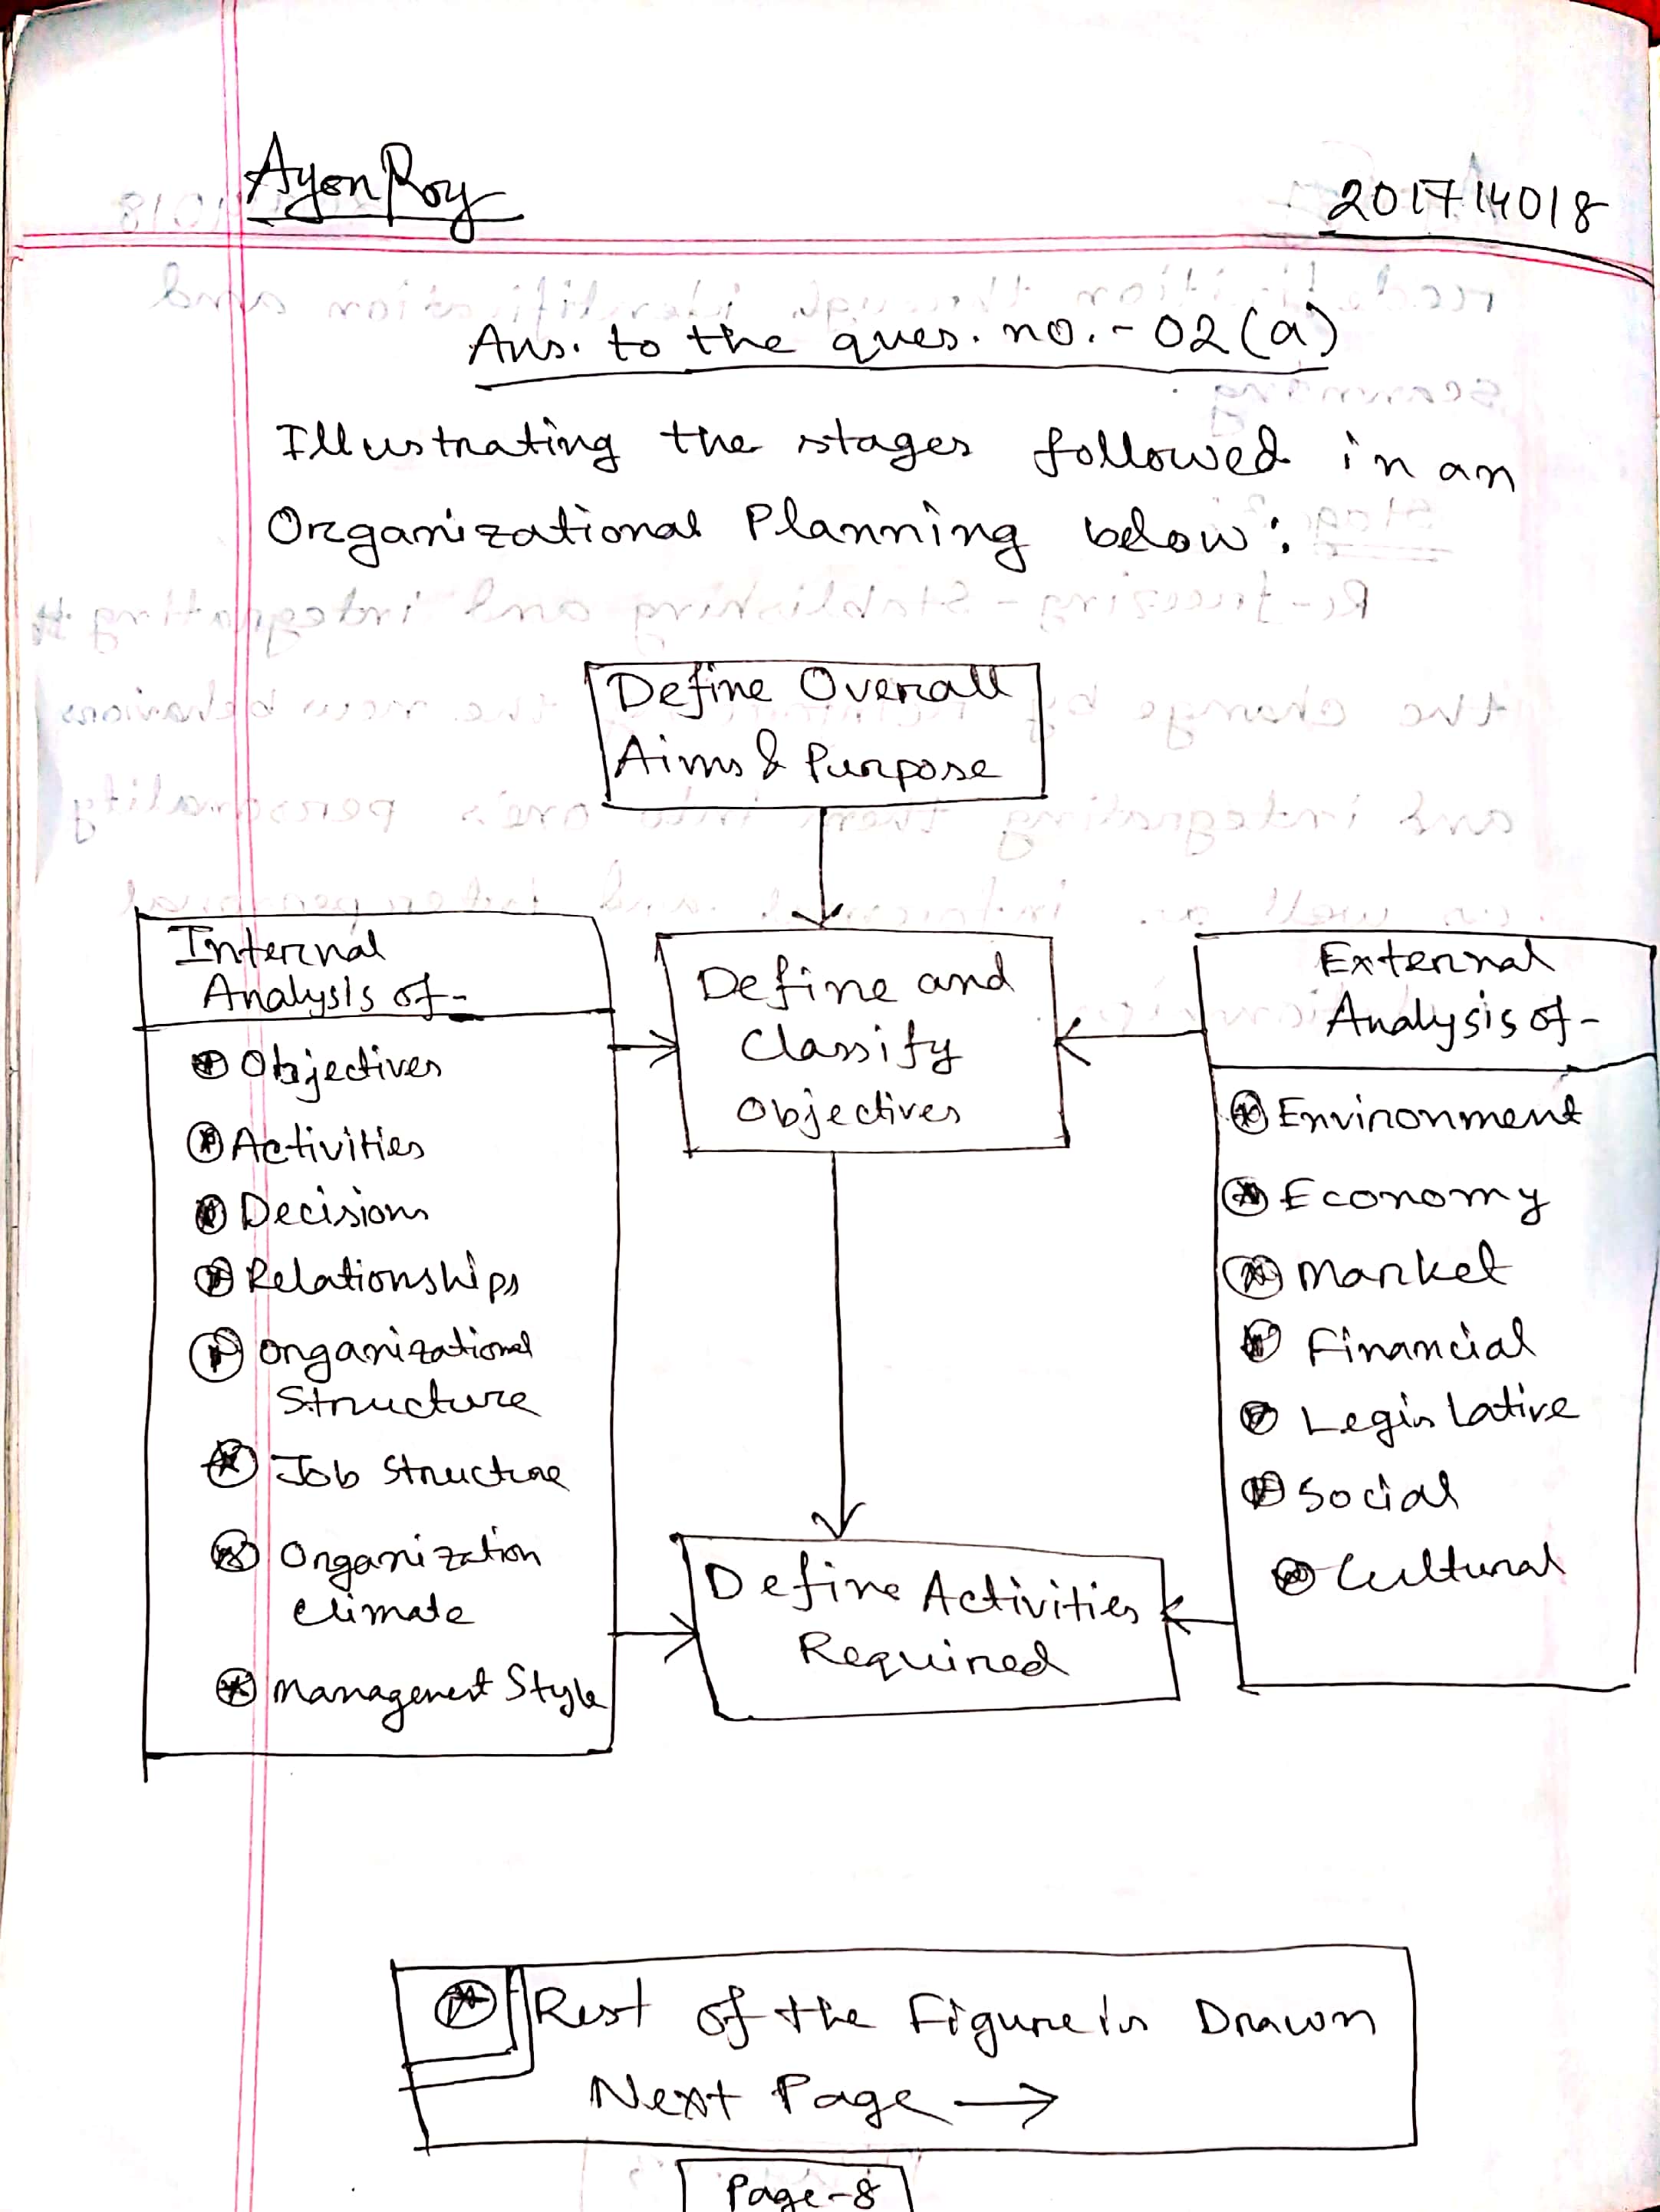 Ayon Roy
201714018
Ans. to the ques. no. - 02 (a)
Illustrating the stages followed in an
Organizational Planning below:
Define Overall
Aims & Purpose
Internal
Analysis of-
Objectives
Activities
Decisions
Relationships
Organizational
Structure
Job Structure
Organization
Climate
Management Style
Define and
Classify
Objectives
Define Activities
Required
External
Analysis of-
Environment
Economy
Market
Financial
Legislative
Social
Cultural
Rest of the Figure is Drawn
Next Page →
Page-8